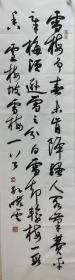 雪梅争春未肯降骚人阁笔费平
章梅须逊雪三分白雪却输梅一段
香 雪梅